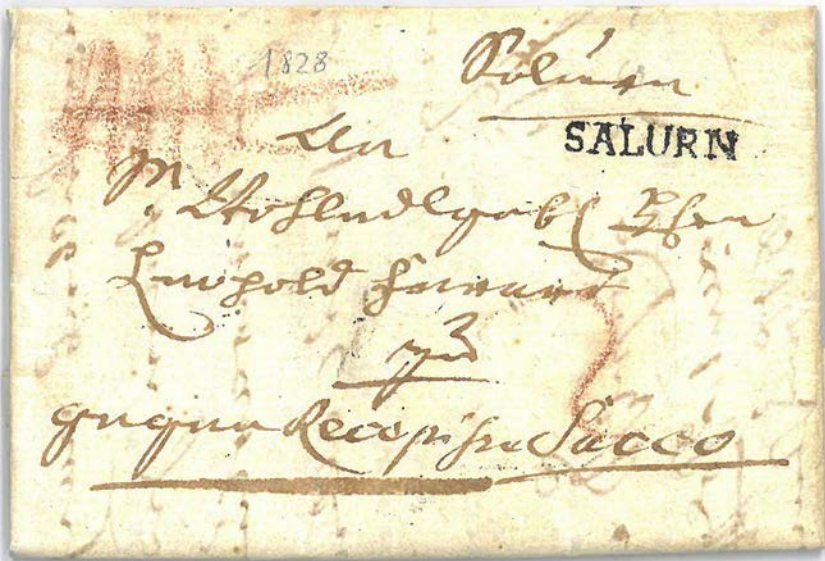 1828
Salurn
SALURN
An
Wohledlgebl Herrn
Leopold
zu
gegen Recepisse Sacco